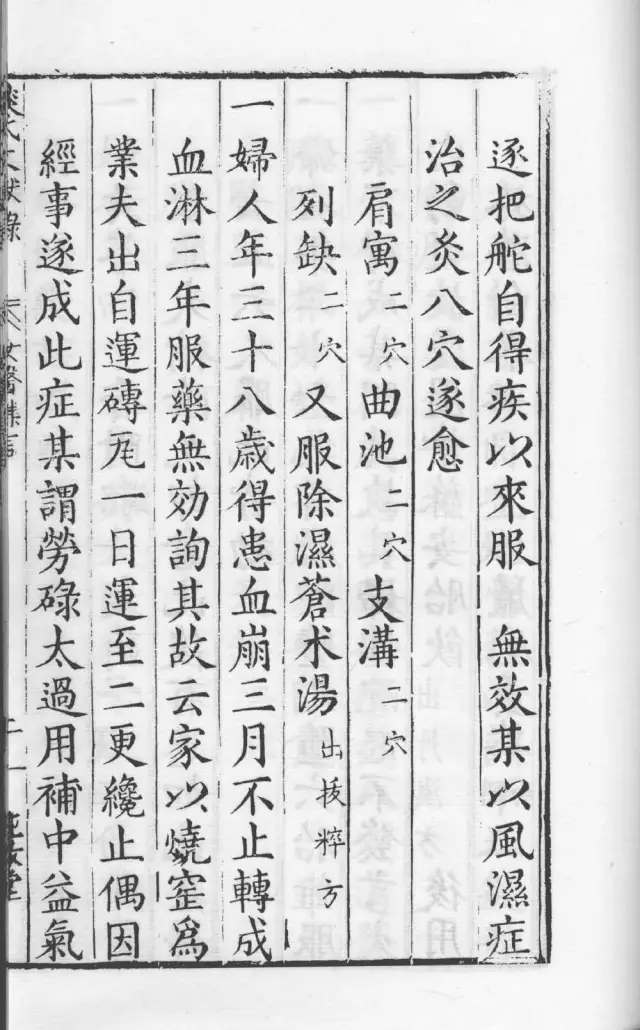 逐把舵自得疾以來服　無效某以風濕症
治之灸八穴遂愈
肩寓二穴曲池二穴支溝二穴
列缺二穴又服除濕蒼术湯出拔粹方
一婦人年三十八歲得患血崩三月不止轉成
血淋三年服藥無効詢其故云家以燒窑爲
業夫出自運磚瓦一日運至二更纔止偶因
經事遂成此症某謂勞碌太過用補中益氣
女醫雜言